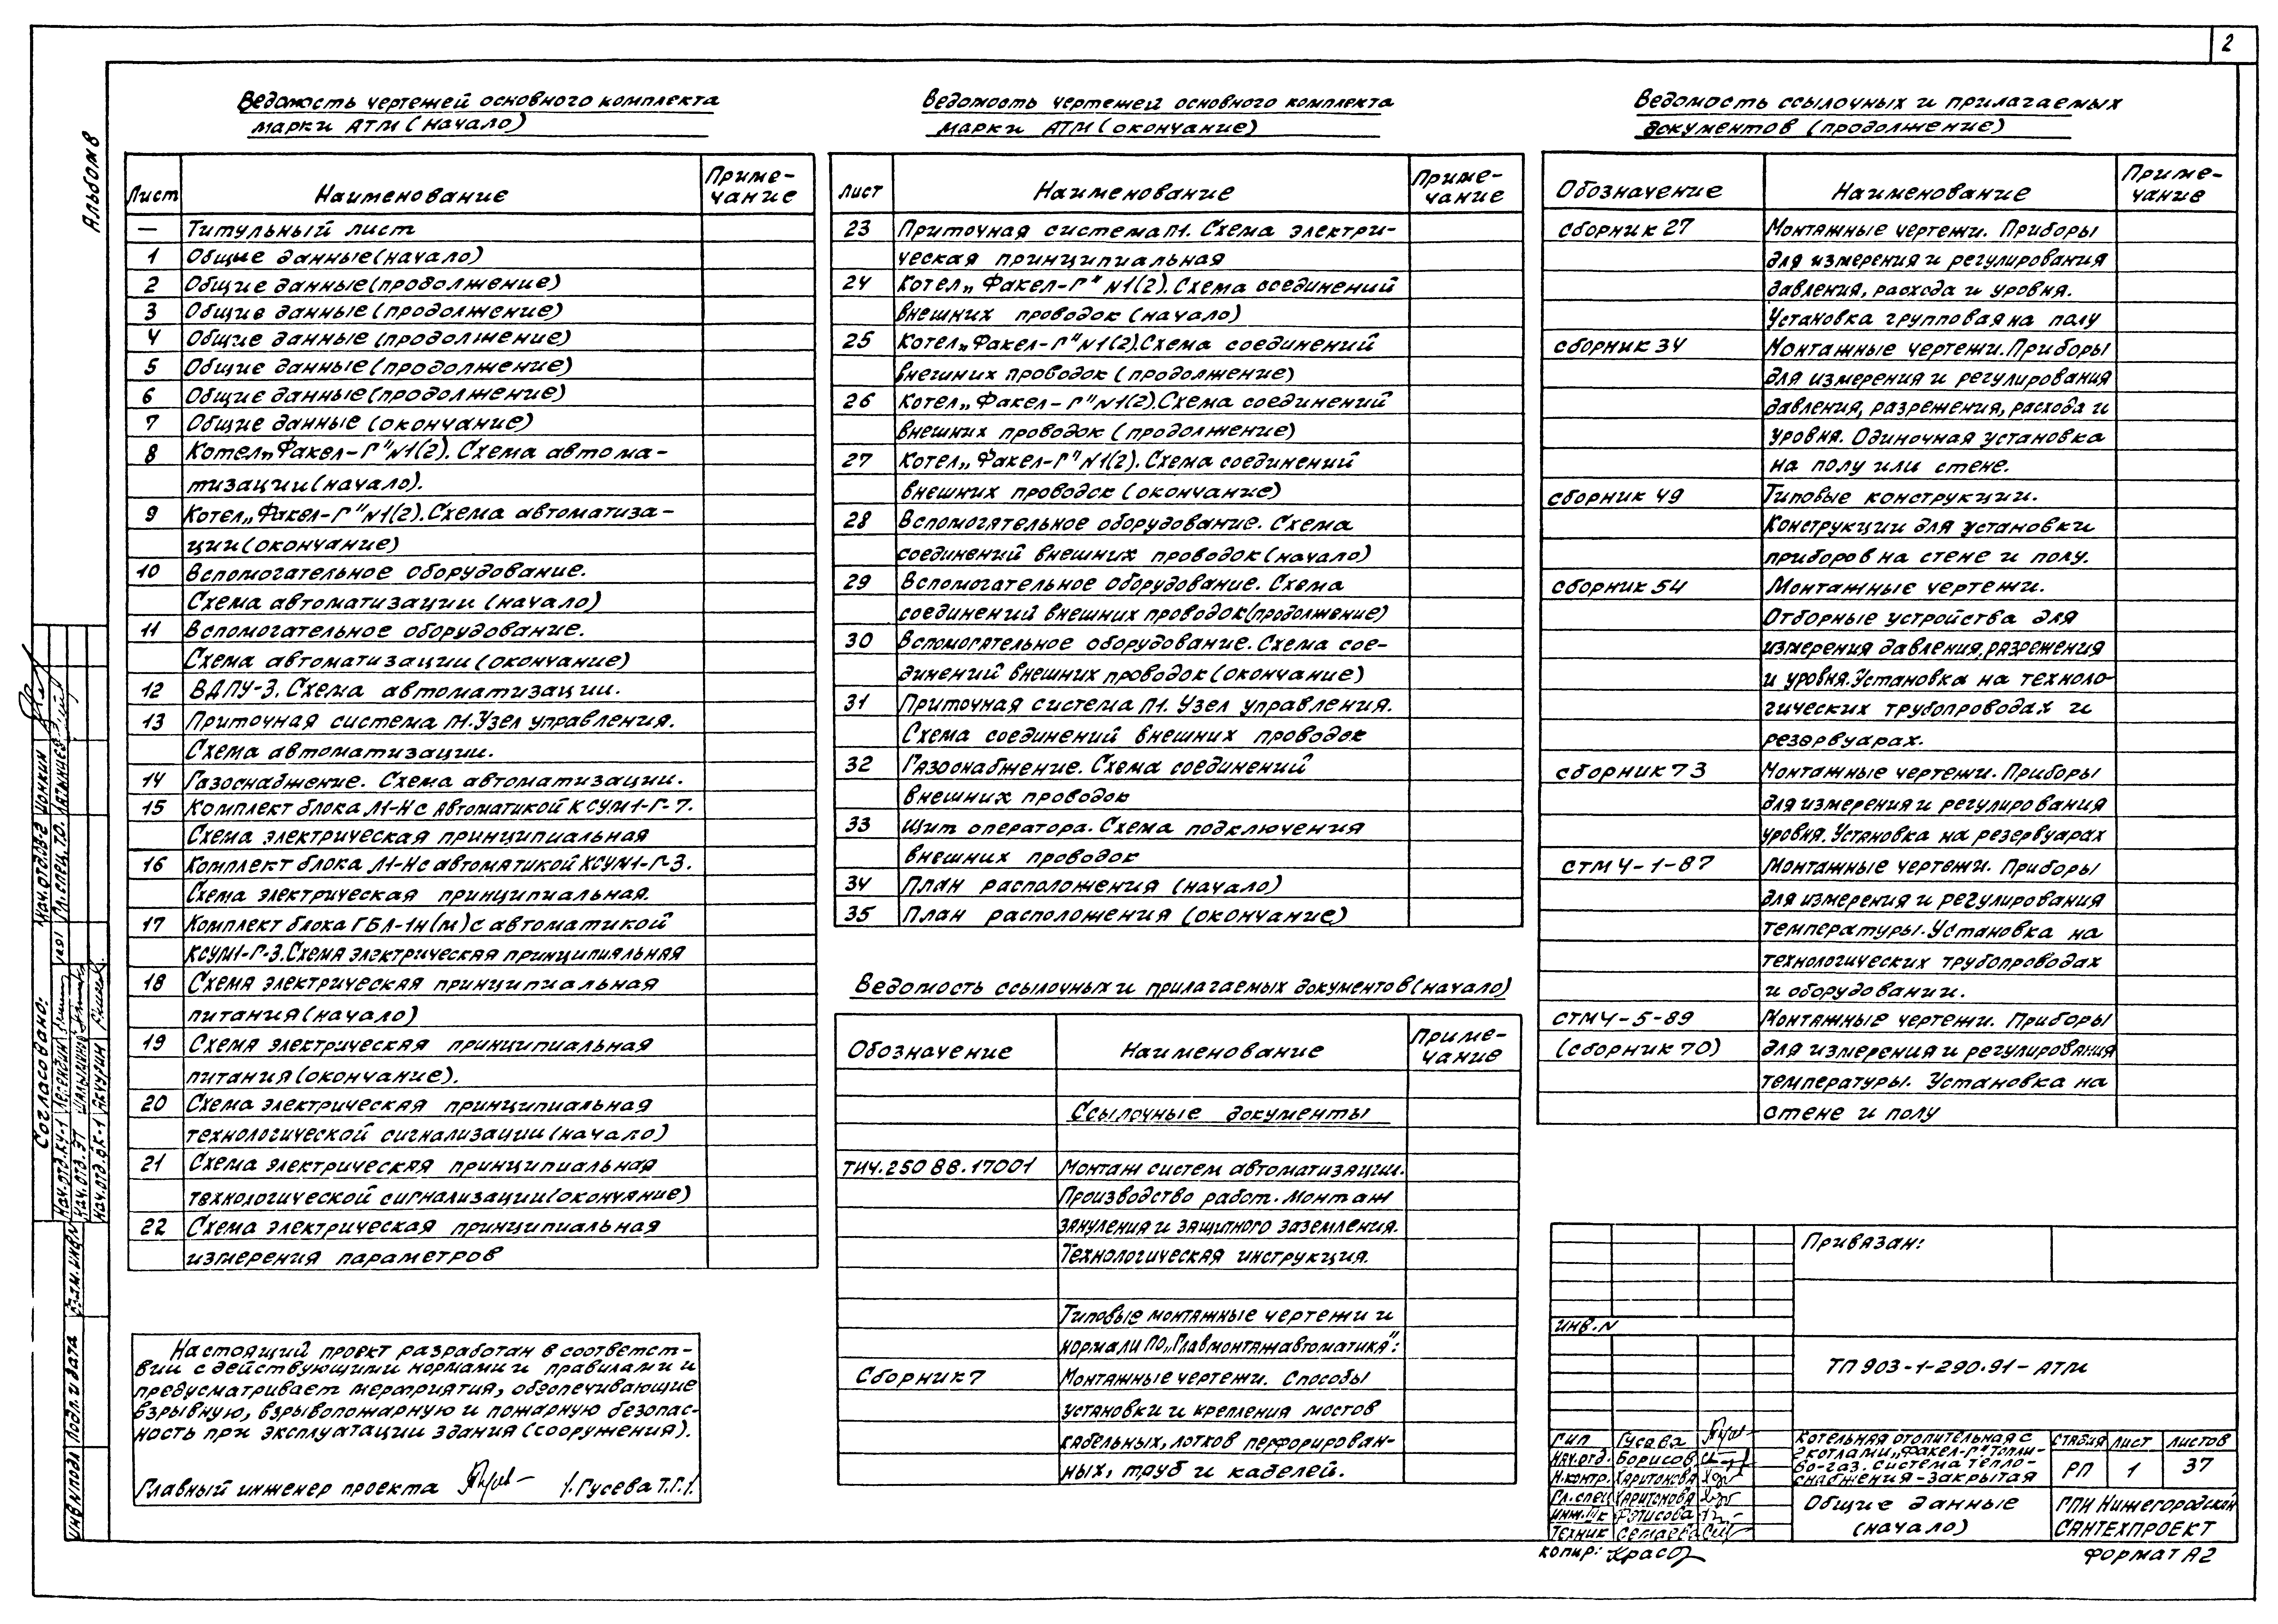 2
Альбом 8
Ведомость чертежей основного комплекта
марки АТМ (начало)
Лист Наименование Приме-
чание
— Титульный лист
1 Общие данные (начало)
2 Общие данные (продолжение)
3 Общие данные (продолжение)
4 Общие данные (продолжение)
5 Общие данные (продолжение)
6 Общие данные (продолжение)
7 Общие данные (окончание)
8 Котел „Факел-Г" N1(2). Схема автома-
тизации (начало).
9 Котел „Факел-Г" N1(2). Схема автоматиза-
ции (окончание)
10 Вспомогательное оборудование.
Схема автоматизации (начало)
11 Вспомогательное оборудование.
Схема автоматизации (окончание)
12 ВДПУ-3. Схема автоматизации.
13 Приточная система П1. Узел управления.
Схема автоматизации.
14 Газоснабжение. Схема автоматизации.
15 Комплект блока Л1-Н с автоматикой КСУМ1-Г-7.
Схема электрическая принципиальная
16 Комплект блока Л1-Н с автоматикой КСУМ1-Г-3.
Схема электрическая принципиальная.
17 Комплект блока ГБЛ-1Н(М) с автоматикой
КСУМ1-Г-3. Схема электрическая принципиальная
18 Схема электрическая принципиальная
питания (начало)
19 Схема электрическая принципиальная
питания (окончание).
20 Схема электрическая принципиальная
технологической сигнализации (начало)
21 Схема электрическая принципиальная
технологической сигнализации (окончание)
22 Схема электрическая принципиальная
измерения параметров
Настоящий проект разработан в соответст-
вии с действующими нормами и правилами и
предусматривает мероприятия, обеспечивающие
взрывную, взрывопожарную и пожарную безопас-
ность при эксплуатации здания (сооружения).
Главный инженер проекта /Гусева Т.Г./
Ведомость чертежей основного комплекта
марки АТМ (окончание)
Лист Наименование Приме-
чание
23 Приточная система П1. Схема электри-
ческая принципиальная
24 Котел „Факел-Г" N1(2). Схема соединений
внешних проводок (начало)
25 Котел „Факел-Г" N1(2). Схема соединений
внешних проводок (продолжение)
26 Котел „Факел-Г" N1(2). Схема соединений
внешних проводок (продолжение)
27 Котел „Факел-Г" N1(2). Схема соединений
внешних проводок (окончание)
28 Вспомогательное оборудование. Схема
соединений внешних проводок (начало)
29 Вспомогательное оборудование. Схема
соединений внешних проводок (продолжение)
30 Вспомогательное оборудование. Схема сое-
динений внешних проводок (окончание)
31 Приточная система П1. Узел управления.
Схема соединений внешних проводок
32 Газоснабжение. Схема соединений
внешних проводок
33 Щит оператора. Схема подключения
внешних проводок
34 План расположения (начало)
35 План расположения (окончание)
Ведомость ссылочных и прилагаемых документов (начало)
Обозначение Наименование Приме-
чание
Ссылочные документы
ТИ4.250 88.17001 Монтаж систем автоматизации.
Производство работ. Монтаж
зануления и защитного заземления.
Технологическая инструкция.
Типовые монтажные чертежи и
нормали ПО „Главмонтажавтоматика":
Сборник 7 Монтажные чертежи. Способы
установки и крепления мостов
кабельных, лотков перфорирован-
ных, труб и кабелей.
Ведомость ссылочных и прилагаемых
документов (продолжение)
Обозначение Наименование Приме-
чание
сборник 27 Монтажные чертежи. Приборы
для измерения и регулирования
давления, расхода и уровня.
Установка групповая на полу
сборник 34 Монтажные чертежи. Приборы
для измерения и регулирования
давления, разрежения, расхода и
уровня. Одиночная установка
на полу или стене.
сборник 49 Типовые конструкции.
Конструкции для установки
приборов на стене и полу.
сборник 54 Монтажные чертежи.
Отборные устройства для
измерения давления, разрежения
и уровня. Установка на техноло-
гических трубопроводах и
резервуарах.
сборник 73 Монтажные чертежи. Приборы
для измерения и регулирования
уровня. Установка на резервуарах
СТМ4-1-87 Монтажные чертежи. Приборы
для измерения и регулирования
температуры. Установка на
технологических трубопроводах
и оборудовании.
СТМ4-5-89 Монтажные чертежи. Приборы
(сборник 70) для измерения и регулирования
температуры. Установка на
стене и полу
Привязан:
Инв. N
ТП 903-1-290.91-АТМ
ГИП Гусева
Нач.отд. Борисов
Н.контр. Харитонова
Гл.спец Харитонова
Инж. IIк Фетисова
Техник Семаева
Котельная отопительная с
2 котлами „Факел-Г" Топли-
во-газ. Система тепло-
снабжения-закрытая
Стадия Лист Листов
РП 1 37
Общие данные
(начало)
ГПИ Нижегородский
САНТЕХПРОЕКТ
Копир: Формат А2
Согласовано:
Нач.отд.ОВ-2 Цонкин
Гл.спец.ТО.
Нач.отд.КЧ-1
Нач.отд.ЭТ
Нач.отд.ВК-1 Акчурин
Взам.инв.N
Подп. и дата
Инв.N подл